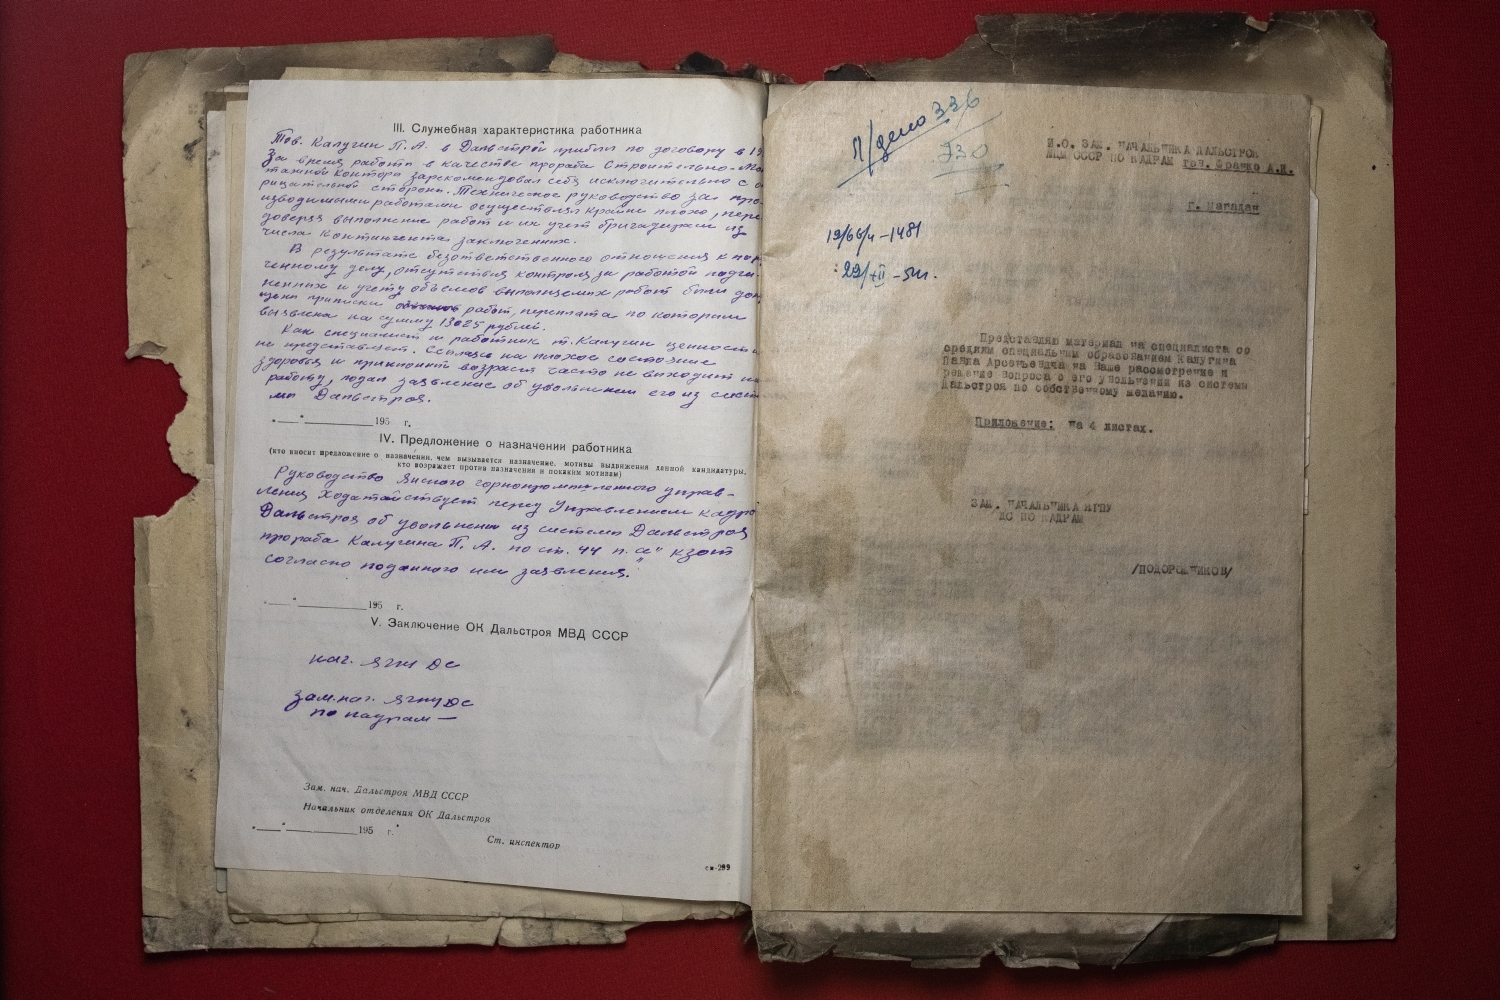 III. Служебная характеристика работника
Тов. Калугин П. А. в Дальстрой прибыл по договору в 19
За время работы в качестве прораба Строительно-Мон
тажной Конторы зарекомендовал себя исключительно с о
рицательной стороны. Техническое руководство за про
изводимыми работами осуществлял крайне плохо, пере
доверяя выполнение работ и их учет бригадирам из
числа контингента заключенных.
В результате безответственного отношения к пору
ченному делу, отсутствия контроля за работой подчи
ненных и учету объемов выполняемых работ были допу
щены приписки работ, переплата по которым
выявлена на сумму 13025 рублей.
Как специалист и работник т. Калугин ценности
не представляет. Ссылаясь на плохое состояние
здоровья и преклонный возраст часто не выходит на
работу, подал заявление об увольнении его из систе
мы Дальстроя.
"__"__________195 г.
IV. Предложение о назначении работника
(кто вносит предложение о назначении, чем вызывается назначение, мотивы выдвижения данной кандидатуры,
кто возражает против назначения и по каким мотивам)
Руководство Янского горнопромышленного управ-
ления ходатайствует перед Управлением кадро
Дальстроя об увольнении из системы Дальстроя
прораба Калугина П. А. по ст. 44 п. "а" КЗОТ
согласно поданного им заявления.
"__"__________195 г.
V. Заключение ОК Дальстроя МВД СССР
нач. ЯГПУ ДС
зам. нач. ЯГПУ ДС
по кадрам —
Зам. нач. Дальстроя МВД СССР
Начальник отделения ОК Дальстроя
"__"__________195 г.
Ст. инспектор
см-299
л/дело 336
930
И.О. ЗАМ. НАЧАЛЬНИКА ДАЛЬСТРОЯ
МВД СССР ПО КАДРАМ тов. А.И.
г. Магадан
19/66/4-1481
29/XII-51г.
Представляю материал на специалиста со
средним специальным образованием Калугина
Павла Арсеньевича на Ваше рассмотрение и
решение вопроса о его увольнении из системы
Дальстроя по собственному желанию.
Приложение: на 4 листах.
ЗАМ. НАЧАЛЬНИКА ЯГПУ
ДС ПО КАДРАМ
/ПОДОРОЖНИКОВ/